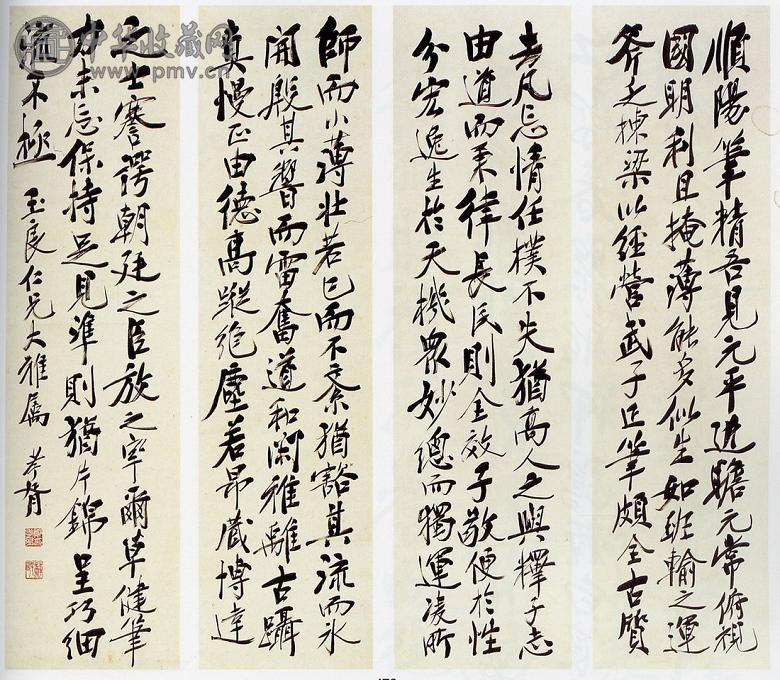 中华收藏网
www.pmv.cn
順陽筆精吾見元平進瞻元常俯視
國明利且掩薄能多似生如班輸之運
斧之棟梁以經營武子正筆頗全古質
去凡忘情任樸不失猶高人之與釋子志
由道而秉律長民則全效子敬便於性
分宏逸生於天機眾妙總而獨運淩所
師而小薄壯若已而不紊猶豁其流而冰
開殷其響而雷奮道和閑雅離古躡
真慢正由德高蹤絕塵若昂藏博達
之士謇諤朝廷之臣放之率爾草健筆
力未忘保持足見準則猶片錦呈巧細
不極 玉良仁兄大雅屬 孝胥